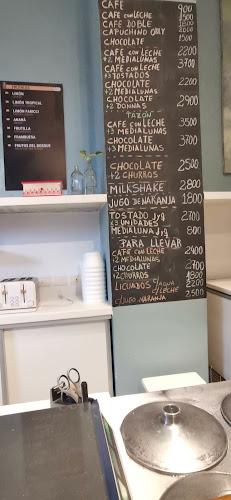 LIMÓN
LIMÓN TROPICAL
LIMÓN
ANANÁ
FRUTILLA
FRAMBUESA
FRUTOS DEL BOSQUE
CAFE 900
CAFE CON LECHE 1500
CAFE DOBLE 1800
CAPUCHINO 2600
CHOCOLATE
CAFE CON LECHE 2200
+2 MEDIALUNAS
CAFE CON LECHE 3700
+3 TOSTADOS
CHOCOLATE 2200
+2 MEDIALUNAS
CHOCOLATE 2900
+2 DONNAS
TAZÓN
CAFE CON LECHE 3500
+3 MEDIALUNAS
CHOCOLATE 3700
+3 MEDIALUNAS
CHOCOLATE 2500
+2 CHURROS
MILKSHAKE 2800
JUGO DE NARANJA 1800
TOSTADO JyQ 2700
x3 UNIDADES
MEDIALUNA JyQ 800
PARA LLEVAR
CAFE CON LECHE 2400
+2 MEDIALUNAS
CHOCOLATE 2700
+2 CHURROS 1800
LICUADOS C/AGUA 2200
C/LECHE 2500
C/JUGO NARANJA